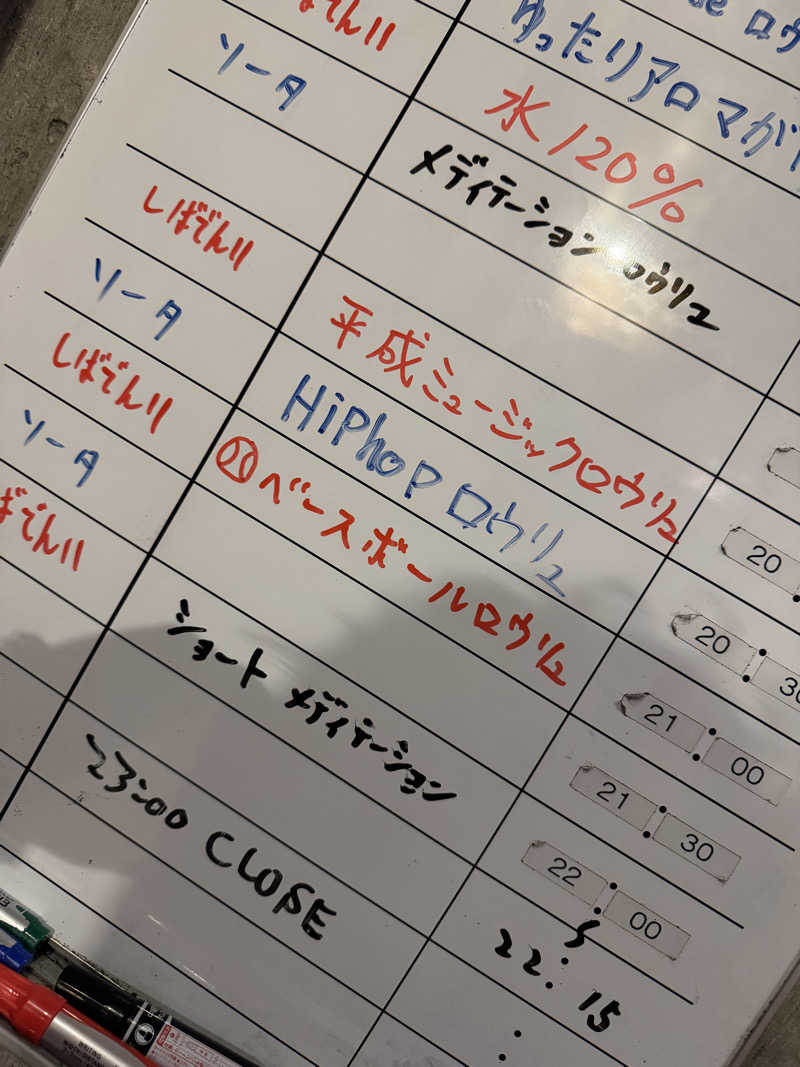 ロウ
ばでん!!
ゆったりアロマ
ソータ
水120%
メディテーション ロウリュ
しばでん!!
平成ミュージックロウリュ
20
ソータ
HiPhop ロウリュ
20:30
しばでん!!
ベースボールロウリュ
21:00
ソータ
21:30
ばでん!!
ショート メディテーション
22:00
22:15
23:00 CLOSE